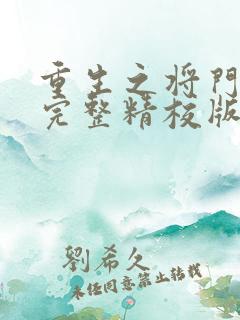 重生之将門
完整精校版
劉希久
未經同意禁止转载